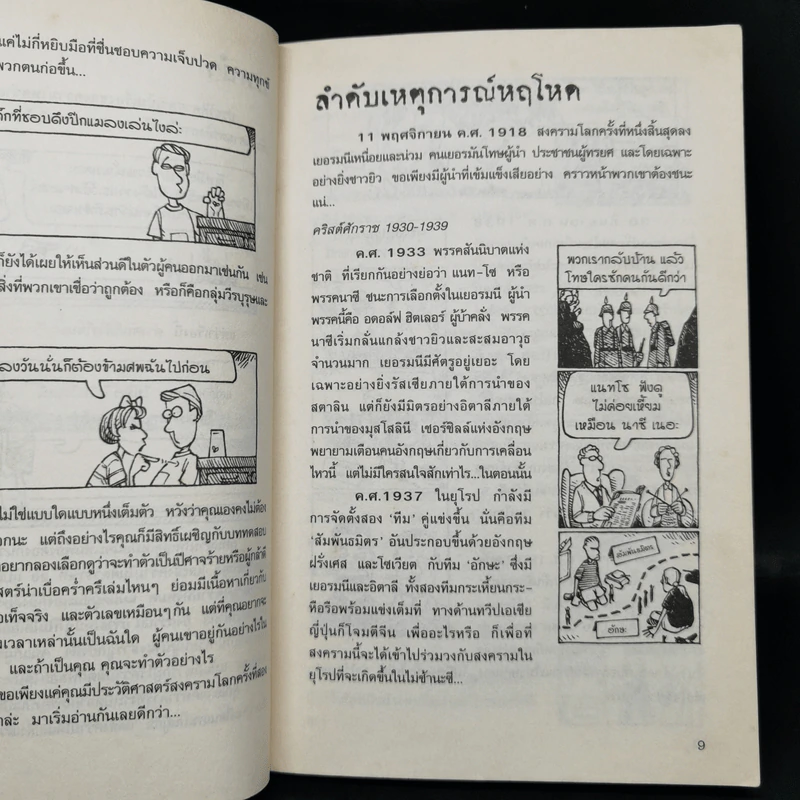 แค่ไม่กี่หยิบมือที่ชื่นชอบความเจ็บปวด ความทุกข์
พวกตนก่อขึ้น...
ก๊กที่ชอบดึงปีกแมลงเล่นไงล่ะ
ก็ยังได้เผยให้เห็นส่วนดีในตัวผู้คนออกมาเช่นกัน เช่น
สิ่งที่พวกเขาเชื่อว่าถูกต้อง หรือก็คือกลุ่มวีรบุรุษและ
ลงวันนั่นก็ต้องข้ามศพฉันไปก่อน
ไม่ใช่แบบใดแบบหนึ่งเต็มตัว หวังว่าคุณเองคงไม่ต้อง
กนะ แต่ถึงอย่างไรคุณก็มีสิทธิ์เผชิญกับบททดสอบ
อยากลองเลือกดูว่าจะทำตัวเป็นปีศาจร้ายหรือผู้กล้าดี
สตร์น่าเบื่อคร่ำครึเล่มไหนๆ ย่อมมีเนื้อหาเกี่ยวกับ
เท็จจริง และตัวเลขเหมือนๆ กัน แต่ที่คุณอยากจะ
เวลาเหล่านั้นเป็นฉันใด ผู้คนเขาอยู่กันอย่างไรใน
และถ้าเป็นคุณ คุณจะทำตัวอย่างไร
ขอเพียงแค่คุณมีประวัติศาสตร์สงครามโลกครั้งที่สอง
ล่ะ มาเริ่มอ่านกันเลยดีกว่า...
ลำดับเหตุการณ์หฤโหด
11 พฤศจิกายน ค.ศ. 1918 สงครามโลกครั้งที่หนึ่งสิ้นสุดลง
เยอรมนีเหนื่อยและน่วม คนเยอรมันโทษผู้นำ ประชาชนผู้ทรยศ และโดยเฉพาะ
อย่างยิ่งชาวยิว ขอเพียงมีผู้นำที่เข้มแข็งเสียอย่าง คราวหน้าพวกเขาต้องชนะ
แน่...
คริสต์ศักราช 1930-1939
ค.ศ. 1933 พรรคสันนิบาตแห่ง
ชาติ ที่เรียกกันอย่างย่อว่า แนท-โซ หรือ
พรรคนาซี ชนะการเลือกตั้งในเยอรมนี ผู้นำ
พรรคนี้คือ อดอล์ฟ ฮิตเลอร์ ผู้บ้าคลั่ง พรรค
นาซีเริ่มกลั่นแกล้งชาวยิวและสะสมอาวุธ
จำนวนมาก เยอรมนีมีศัตรูอยู่เยอะ โดย
เฉพาะอย่างยิ่งรัสเซียภายใต้การนำของ
สตาลิน แต่ก็ยังมีมิตรอย่างอิตาลีภายใต้
การนำของมุสโสลินี เชอร์ชิลล์แห่งอังกฤษ
พยายามเตือนคนอังกฤษเกี่ยวกับการเคลื่อน
ไหวนี้ แต่ไม่มีใครสนใจสักเท่าไร...ในตอนนั้น
ค.ศ.1937 ในยุโรป กำลังมี
การจัดตั้งสอง 'ทีม' คู่แข่งขึ้น นั่นคือทีม
'สัมพันธมิตร' อันประกอบขึ้นด้วยอังกฤษ
ฝรั่งเศส และโซเวียต กับทีม 'อักษะ' ซึ่งมี
เยอรมนีและอิตาลี ทั้งสองทีมกระเหี้ยนกระ-
หือรือพร้อมแข่งเต็มที่ ทางด้านทวีปเอเชีย
ญี่ปุ่นก็โจมตีจีน เพื่ออะไรหรือ ก็เพื่อที่
สงครามนี้จะได้เข้าไปร่วมวงกับสงครามใน
ยุโรปที่จะเกิดขึ้นในไม่ช้านะซี...
พวกเรากลับบ้าน แล้ว
โทษใครซักคนกันดีกว่า
แนทโซ ฟังดู
ไม่ค่อยเหี้ยม
เหมือน นาซี เนอะ
สัมพันธมิตร
อักษะ
9